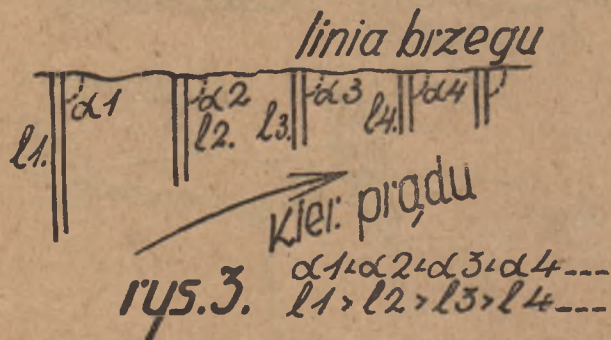 linia brzegu
α1 α2 α3 α4
l1. l2. l3. l4.
kier. prądu
rys.3. α1<α2<α3<α4---
l1>l2>l3>l4---